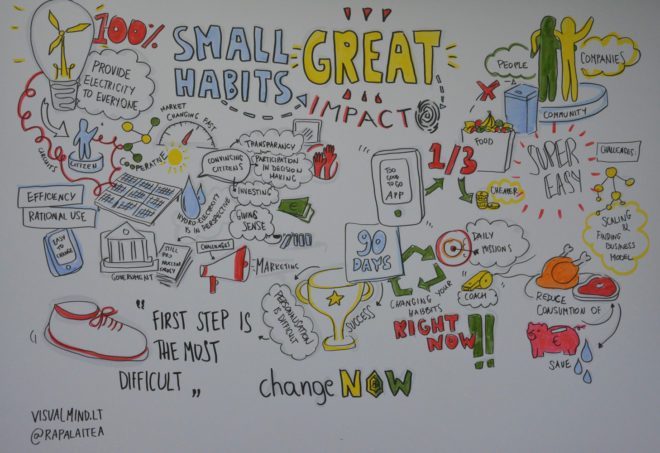 100%
SMALL
HABITS
GREAT
IMPACT
PROVIDE
ELECTRICITY
TO EVERYONE
MARKET
CHANGING FAST
CITIZEN
COOPERATIVE
EFFICIENCY
RATIONAL USE
EASY
TO
CHANGE
GOVERNMENT
STILL PRO
NUCLEAR
ENERGY
HYDRO-ELECTRICITY
IS IN PERSPECTIVE
TRANSPARANCY
CONVINCING
CITIZENS
PARTICIPATION
IN DECISION
MAKING
INVESTING
GIVING
SENSE
CHALLENGES
MARKETING
PEOPLE
COMPANIES
COMMUNITY
TOO
GOOD
TO GO
APP
1/3
FOOD
CHEAPER
SUPER
EASY
CHALLENGES
SCALING
N
FINDING
BUSINESS
MODEL
90
DAYS
DAILY
MISSIONS
COACH
CHANGING YOUR
HABBITS
RIGHT
NOW!!
PERSONALISATION
IS DIFFICULT
SUCCESS
REDUCE
CONSUMTION OF
€
SAVE
"FIRST STEP IS
THE MOST
DIFFICULT"
changeNOW
VISUALMIND.LT
@RAPALAITEA